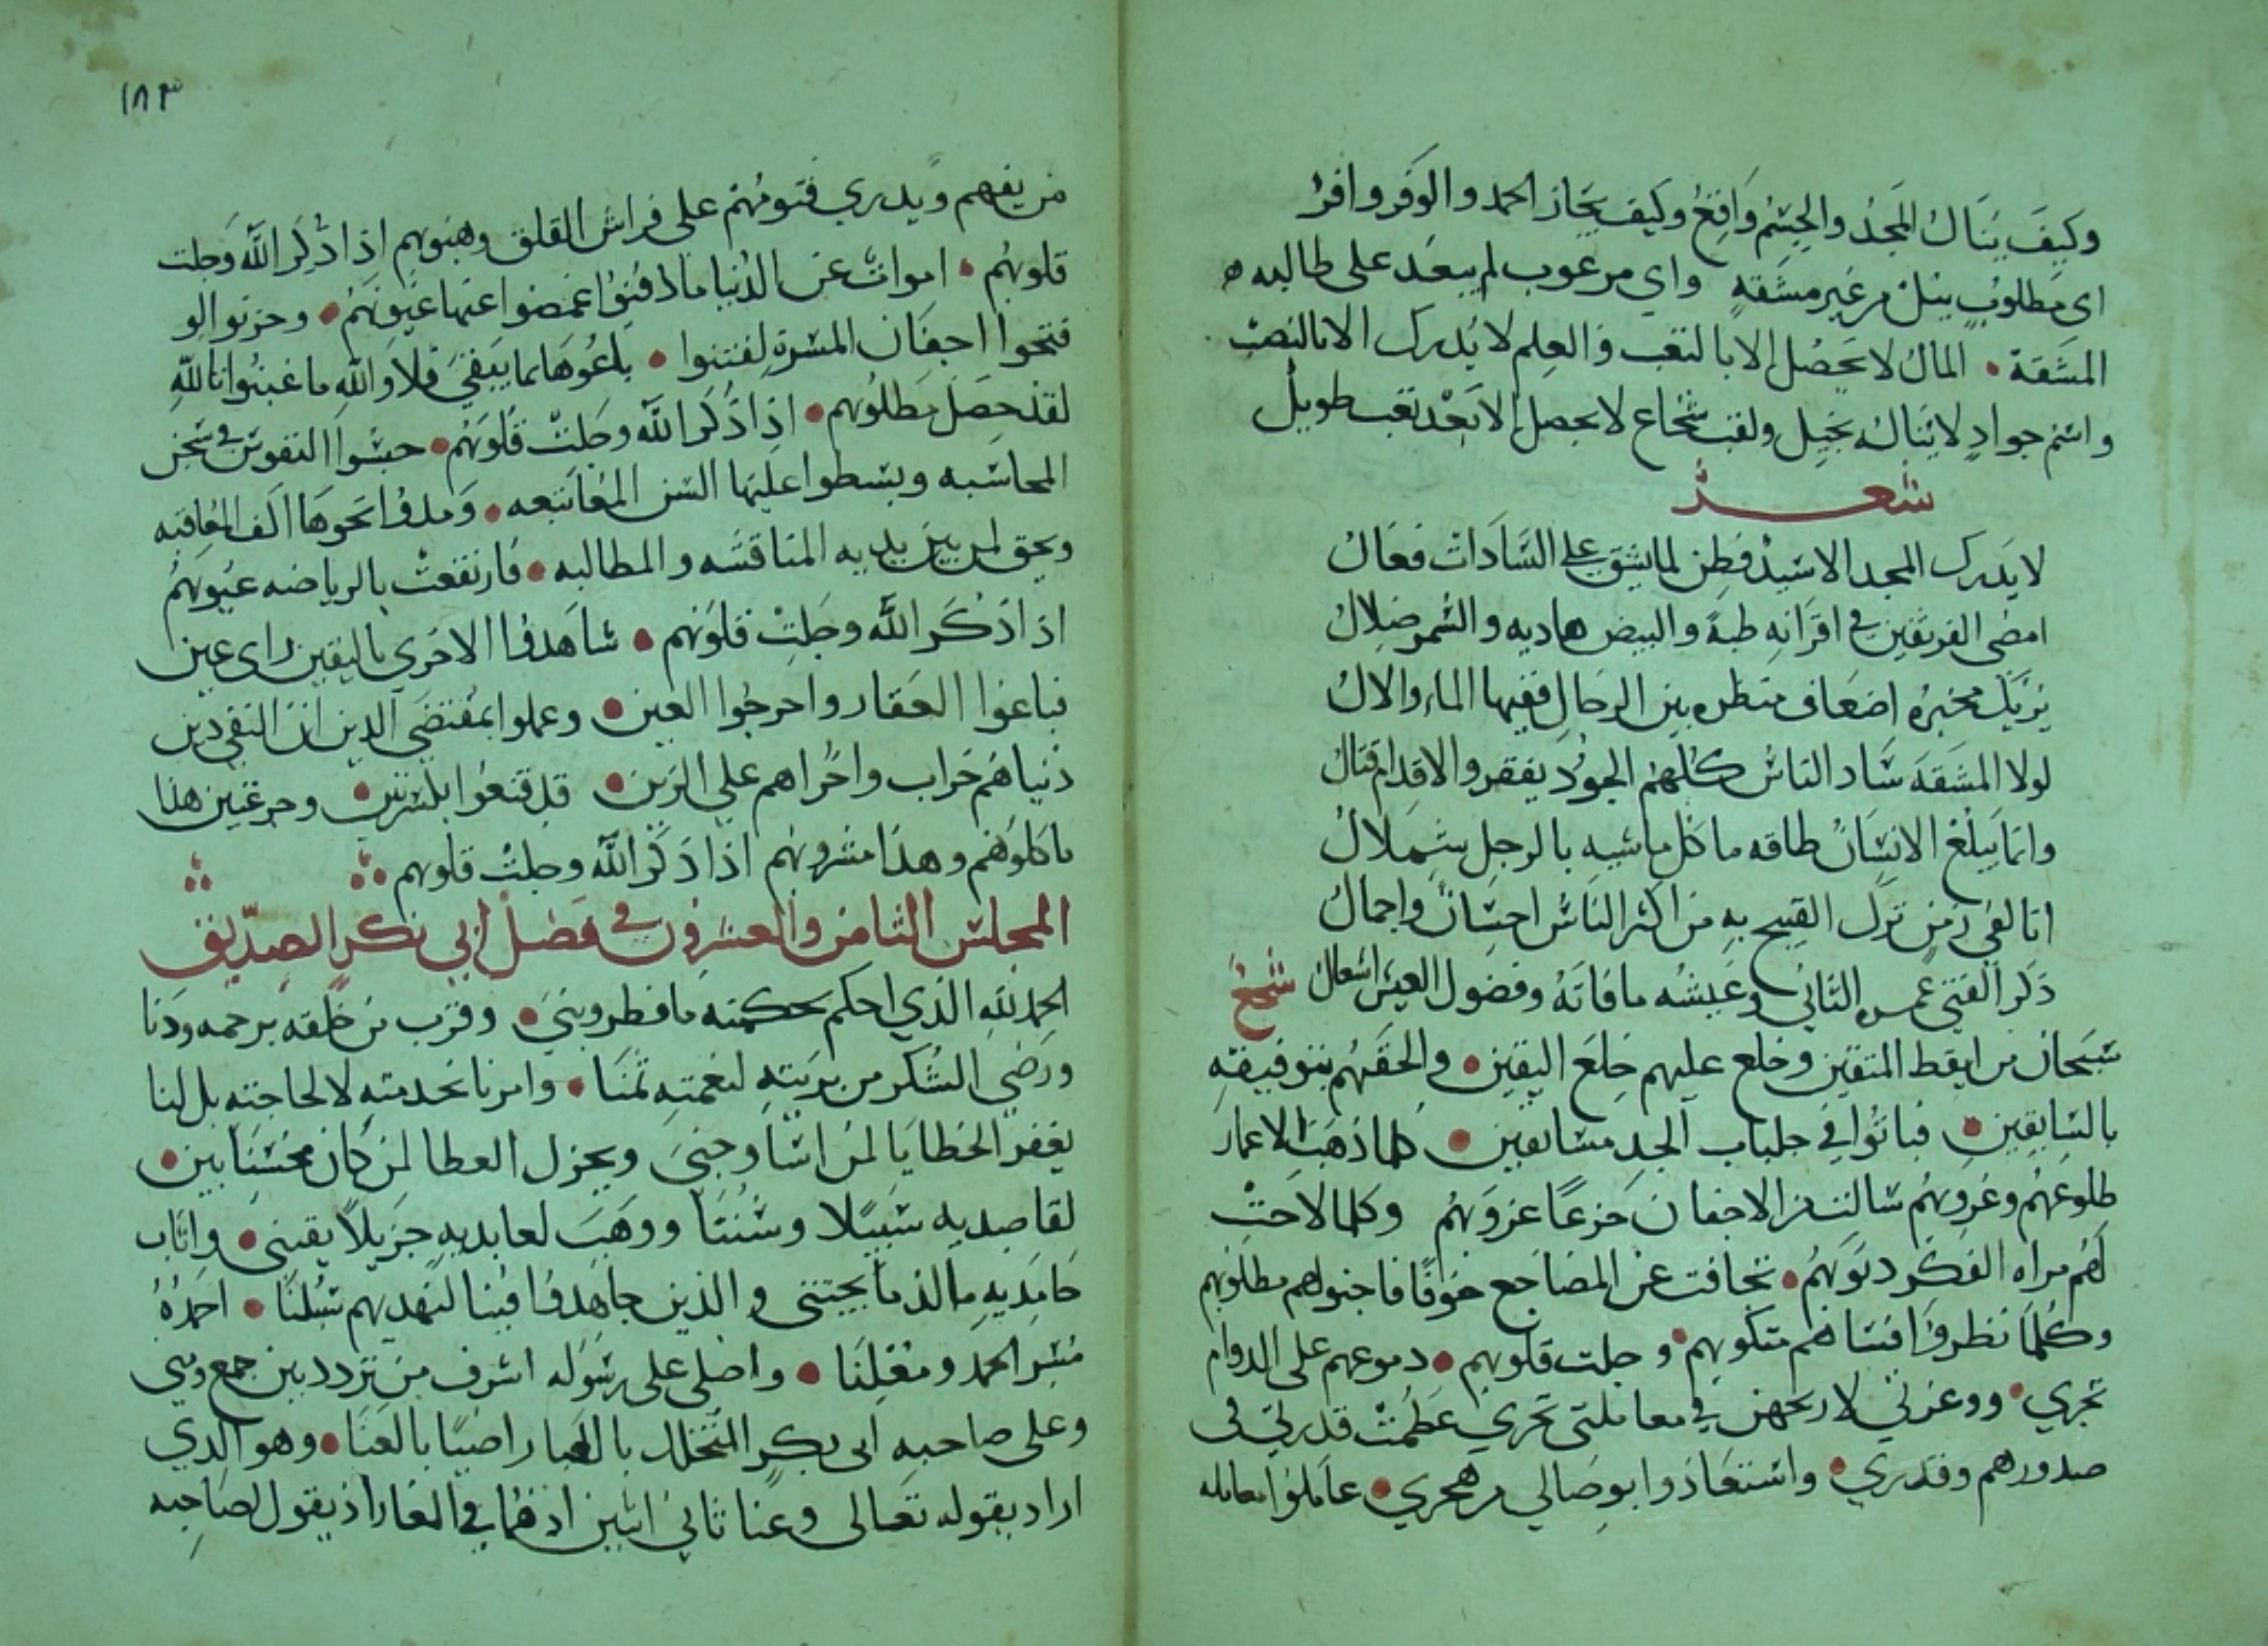 وكيف ينال المجد والجسم وافر وكيف يحاز الحمد والوفر وافر
اى مطلوب ينل من غير مشقه واي مرغوب لم يبعد على طالبه
المشقة • المال لا يحصل الا بالتعب والعلم لا يدرك الا بالنصب
واسم جواد لا يناله بخيل ولقب شجاع لا يحصل الا بعد تعب طويل
شعر
لا يدرك المجد الا سيد فطن لما يشق على السادات فعال
امضى الفريقين في اقرانه ظبة والبيض هاديه والسمر ضلال
يريك مخبره اضعاف منظره بين الرجال ففيها الماء والال
لولا المشقه ساد الناس كلهم الجود يفقر والاقدام قتال
وانما يبلغ الانسان طاقه ما كل ماشيه بالرجل شملال
انا لفي زمن ترك القبيح به من اكثر الناس احسان واجمال
ذكر الفتى عمره الثاني وعيشه ما فاته وفضول العيش اشغال
سبحان من ايقظ المتقين وخلع عليهم خلع اليقين • والحقهم بتوفيقه
بالسابقين • فباتوا في جلباب الجد مسابقين • كلما ذهبت الاعمار
طلوعهم وغروبهم سالت من الاجفان جزعا غروبهم وكلما لاحت
لهم مراه الفكر ذنوبهم • تجافت عن المضاجع خوفا فاجنولهم مطلوبهم
وكلما نظروا فساهم متكوبهم • وجلت قلوبهم • دموعهم على الدوام
تجري • ووعزتي لاربحهن في معاملتى تجري عظمت قدرتي فى
صدورهم وقدري • واستعاذوا بوصالي من هجري • عاملوا معامله
١٨٣
من يفهم ويدري فنومهم على فراش القلق وهبوبهم اذا ذكر الله وجلت
قلوبهم • اموات عن الدنيا ما دفنوا غمضوا عنها عيونهم • وحزنوا لو
فتحوا اجفان المسرة لفتنوا • باعوها بما يبقى فلا والله ما غبنوا تالله
لقد حصل مطلوبهم • اذا ذكر الله وجلت قلوبهم • حبسوا النفوس في سجن
المحاسبه وبسطوا عليها السن المعاتبه • ومدوا نحوها اكف المعاقبه
ويحق لمن بين يديه المناقشه والمطالبه • فارتفعت بالرياضه عيوبهم
اذا ذكر الله وجلت قلوبهم • شاهدوا الاخرى باليقين راى عين
فباعوا العقار واخرجوا العين • وعملوا بمقتضى الدين ان التقي دين
دنياهم خراب واخراهم على الزين • قد قنعوا بكسرتين • وجرعتين هذا
ماكلوهم وهذا مشروبهم اذا ذكر الله وجلت قلوبهم
المجلس الثامن والعشرون في فضل ابي بكر الصديق
الحمد لله الذي احكم بحكمته ما فطر وبنى • وقرب من خلقه برحمه ودنا
ورضي الشكر من بريته لنعمته ثمنا • وامرنا بخدمته لا لحاجته بل لنا
يغفر الخطايا لمن اسا وجنى ويجزل العطا لمن كان محسنا بين •
لقاصديه سبيلا وسننا ووهب لعابديه جزيلا يقتنى • واثاب
حامديه مالذ ما يجتنى والذين جاهدوا فينا لنهدينهم سبلنا • احمده
مسر الحمد ومعلنا • واصلى على رسوله اشرف من تردد بين جمع ومنى
وعلى صاحبه ابى بكر المتخلل بالعبا راضيا بالعنا • وهو الذي
اراد بقوله تعالى وعنا ثاني اثنين اذ هما في الغار اذ يقول لصاحبه